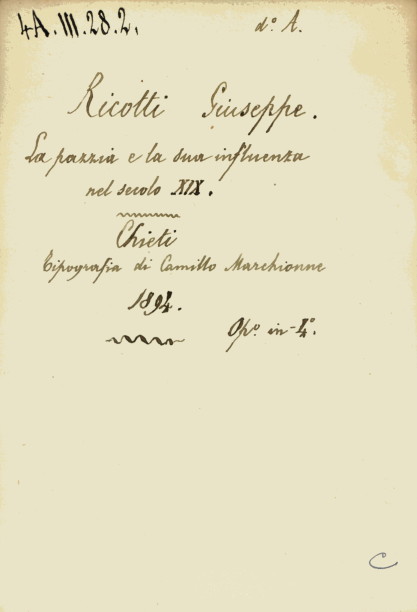 4A.III.28.2.
d.° A.
Ricotti Giuseppe.
La pazzia e la sua influenza
nel secolo XIX.
Chieti
Tipografia di Camillo Marchionne
1894.
Op.° in-4.°
C